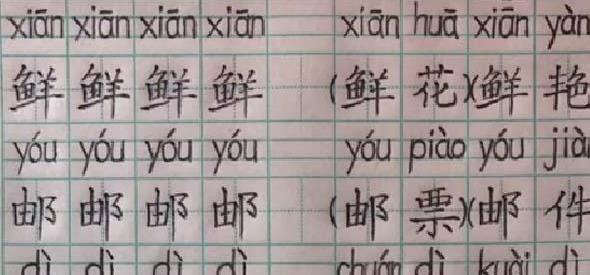 xiān xiān xiān xiān xiān huā xiān yàn
鲜 鲜 鲜 鲜 (鲜 花)(鲜 艳
yóu yóu yóu yóu yóu piào yóu jiàn
邮 邮 邮 邮 (邮 票)(邮 件
dì dì dì dì chuán dì kuài dì